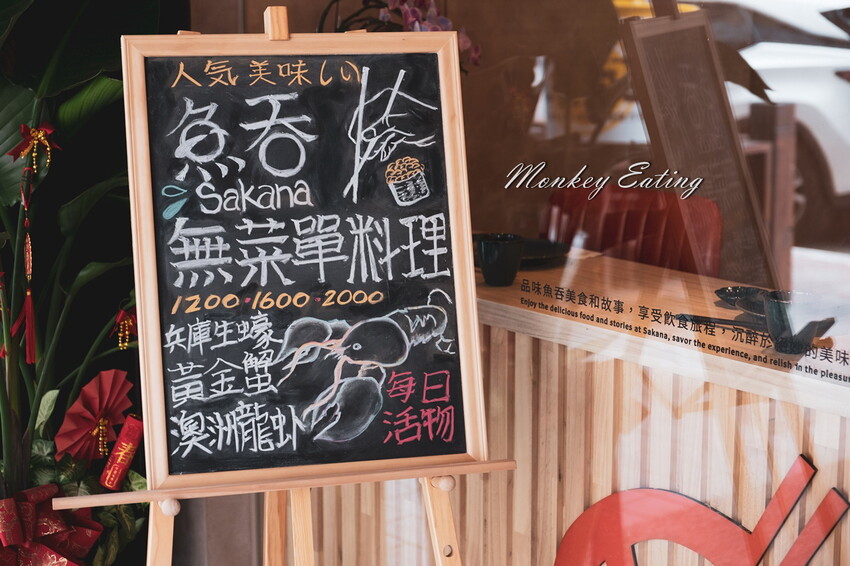 人気美味しい
魚吞
Sakana
無菜單料理
1200·1600·2000
兵庫生蠔
黃金蟹
澳洲龍虾
每日
活物
Monkey Eating
品味魚吞美食和故事，享受飲食旅程，沉醉於
的美味
Enjoy the delicious food and stories at Sakana, savor the experience, and relish in the pleasur
春